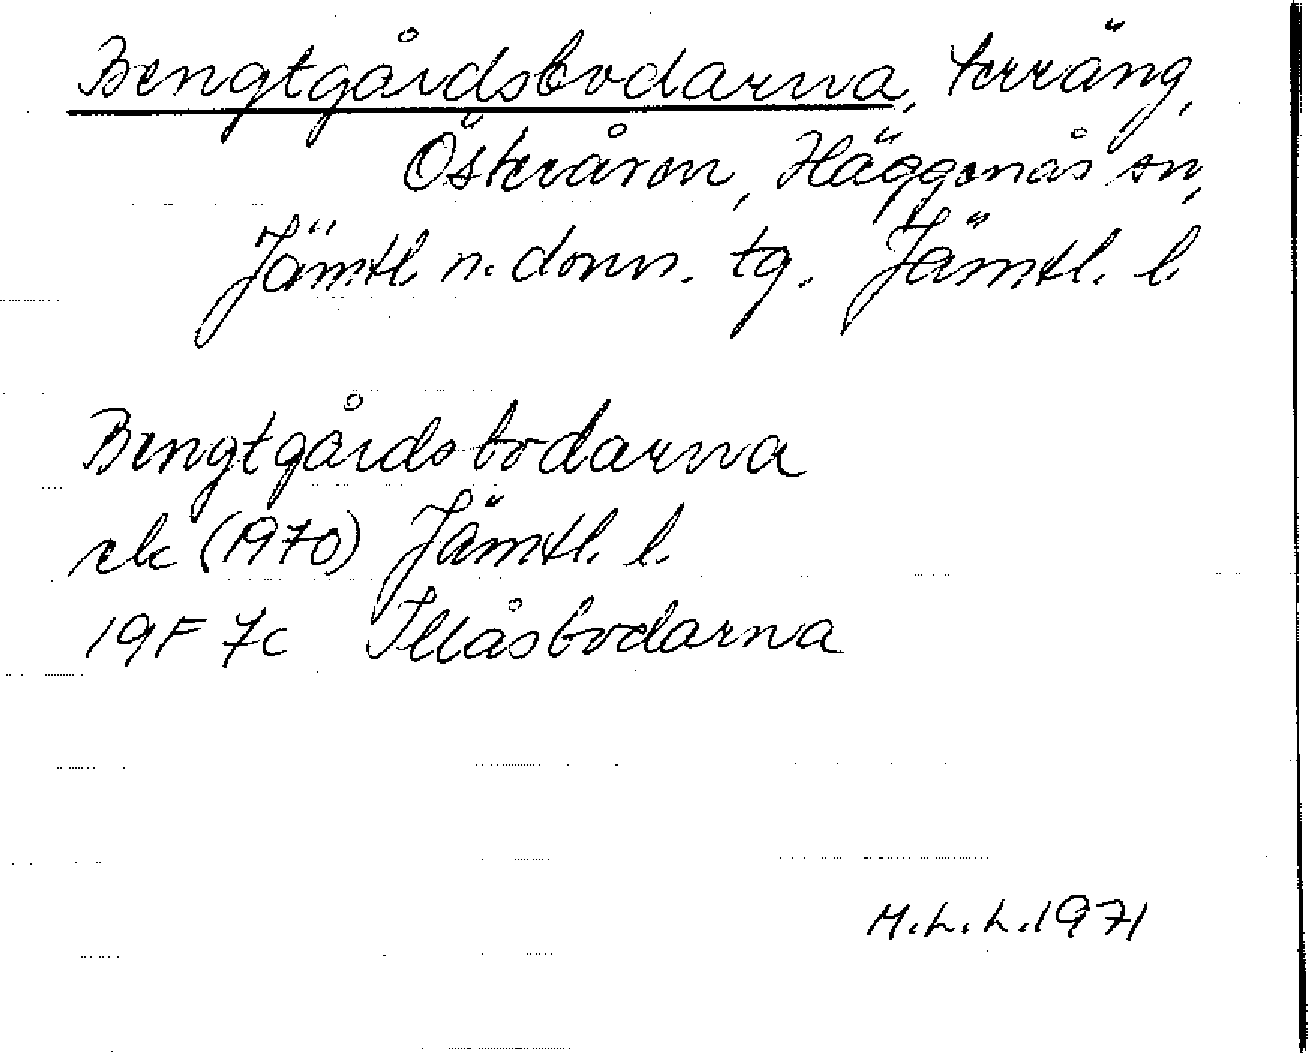 Bengtgårdsbodarna, terräng,
Österåsen, Häggenås sn,
Jämtl. n. doms. tg. Jämtl. l.
Bengtgårdsbodarna
ek (1970) Jämtl. l.
19F 7c Illåsbodarna
M.L.L. 1971